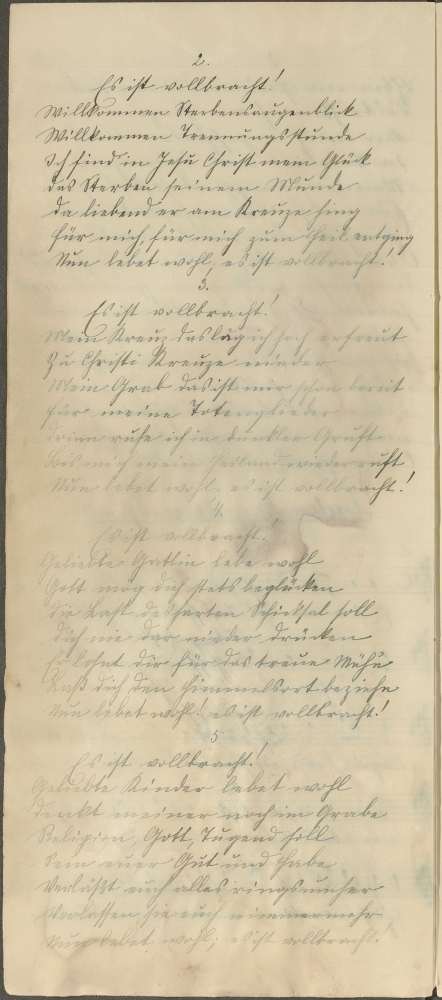 2.
Es ist vollbracht!
Willkommen Sterbensaugenblick
Willkommen Trennungsstunde
Ich find in Jesu Christ mein Glück
das Sterben seinem Munde
da liebend er am Kreuze hing
für mich, für mich zum Heil entging
Nun lebet wohl, es ist vollbracht!
3.
Es ist vollbracht!
Mein Kreuz das leg ich hoch erfreut
Zu Christi Kreuze nieder
Mein Grab das ist mir schon bereit
für meine Totenglieder
drinn ruhe ich in dunkler Gruft
bis mich mein Heiland wieder ruft
Nun lebet wohl, es ist vollbracht!
4.
Es ist vollbracht!
Geliebte Gattin lebe wohl
Gott mög dich stets beglücken
Die Last des harten Schicksal soll
dich nie dar nieder drücken
Er lohnt dir für das treue Mühn
Laß dich den Himmelsort beziehn
Nun lebet wohl! es ist vollbracht!
5
Es ist vollbracht!
Geliebte Kinder lebet wohl
denkt meiner noch im Grabe
Religion, Gott, Tugend soll
Sein euer Gut und Habe
Verläßt euch alles rings umher
Verlassen sie euch nimmermehr
Nun lebet wohl; es ist vollbracht!